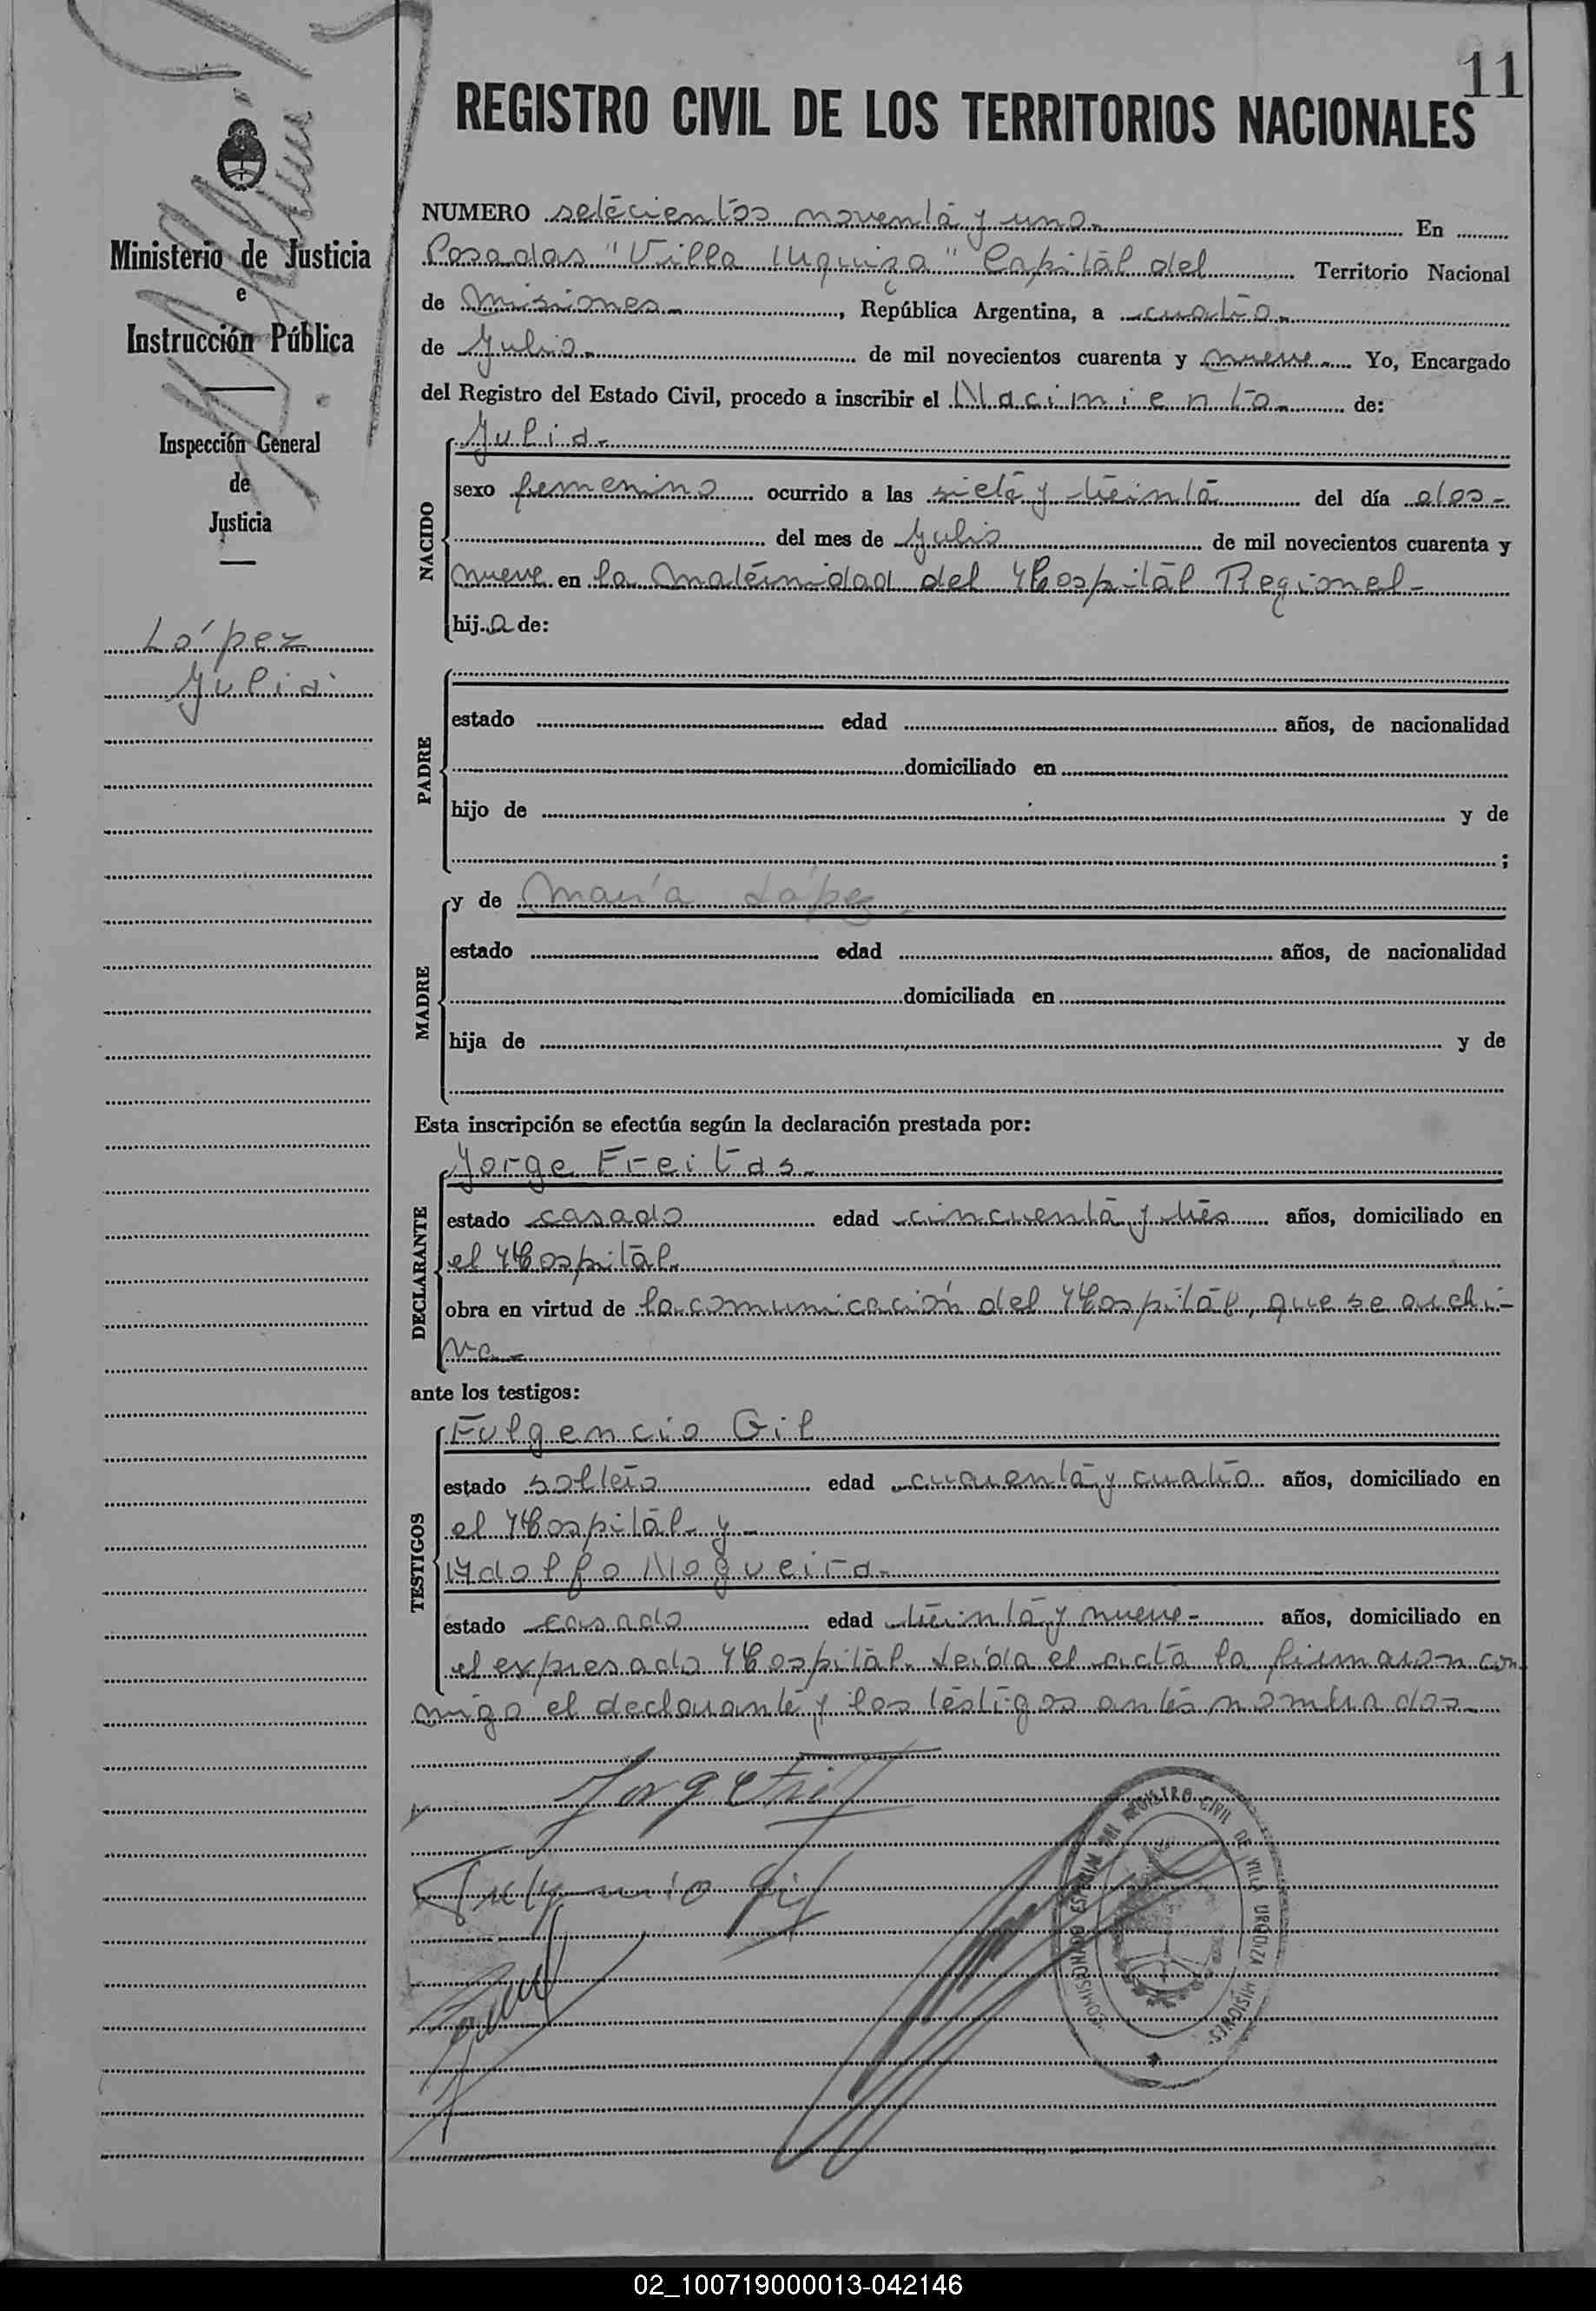 11
REGISTRO CIVIL DE LOS TERRITORIOS NACIONALES
Ministerio de Justicia
e
Instrucción Pública
Inspección General
de
Justicia
López
Julia
NUMERO setecientos noventa y uno. En
Posadas "Villa Urquiza" Capital del Territorio Nacional
de Misiones, República Argentina, a cuatro
de Julio de mil novecientos cuarenta y nueve. Yo, Encargado
del Registro del Estado Civil, procedo a inscribir el Nacimiento de:
NACIDO
Julia
sexo femenino ocurrido a las siete y treinta del día dos
del mes de Julio de mil novecientos cuarenta y
nueve en la Maternidad del Hospital Regional
hija de:
PADRE
estado edad años, de nacionalidad
domiciliado en
hijo de y de
;
MADRE
y de María López
estado edad años, de nacionalidad
domiciliada en
hija de y de
Esta inscripción se efectúa según la declaración prestada por:
DECLARANTE
Jorge Freitas
estado casado edad cincuenta y tres años, domiciliado en
el Hospital.
obra en virtud de la comunicación del Hospital, que se archi-
va
ante los testigos:
TESTIGOS
Fulgencio Gil
estado soltero edad cuarenta y cuatro años, domiciliado en
el Hospital y
Adolfo Nogueira
estado casado edad treinta y nueve años, domiciliado en
el expresado Hospital. Leída el acta la firmaron con
migo el declarante y los testigos antes nombrados.
Fulgencio Gil
COMISIONADO ESPECIAL DEL REGISTRO CIVIL DE VILLA URQUIZA MISIONES
02_100719000013-042146